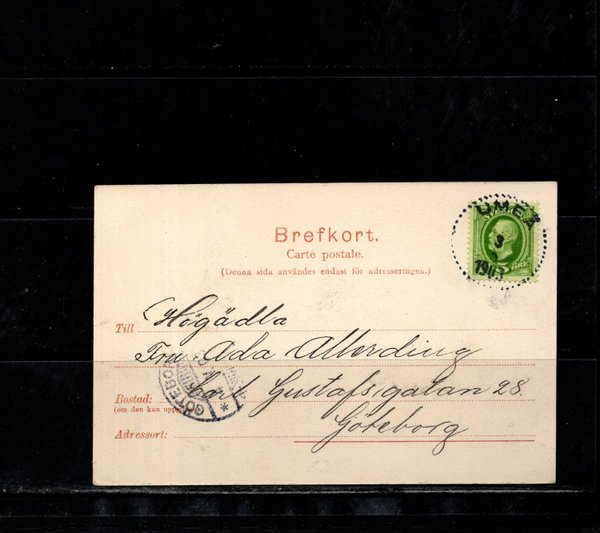 Brefkort.
Carte postale.
(Denna sida användes endast för adresseringen.)
UMEÅ
3
SVERIGE
ÖRE
Till Högädla
Fru Ada Allerding
Carl Gustafsgatan 28.
Bostad:
(om den kan uppg
Göteborg
Adressort:
GÖTEBORG